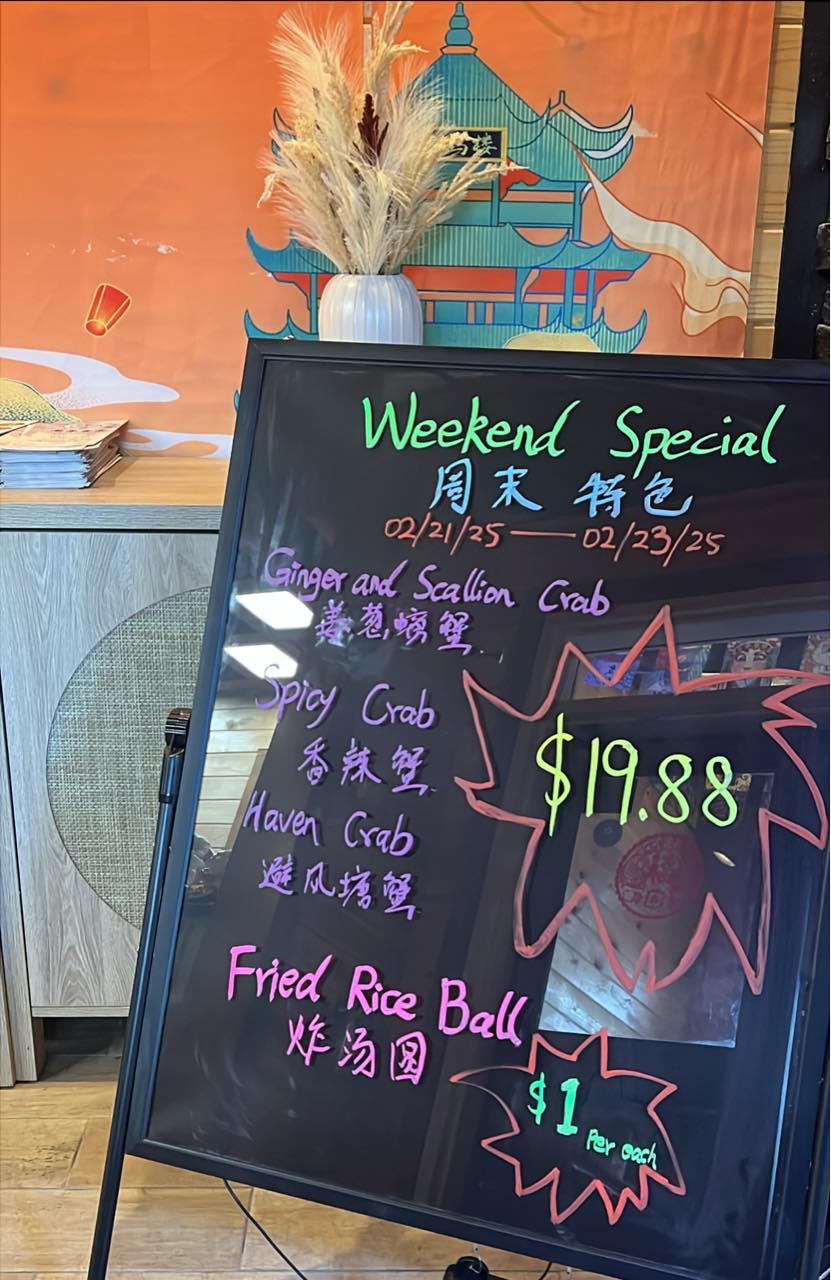 Weekend Special
周末 特色
02/21/25 — 02/23/25
Ginger and Scallion Crab
姜葱螃蟹
Spicy Crab
香辣蟹
$19.88
Haven Crab
避风塘蟹
Fried Rice Ball
炸汤圆
$1 Per each